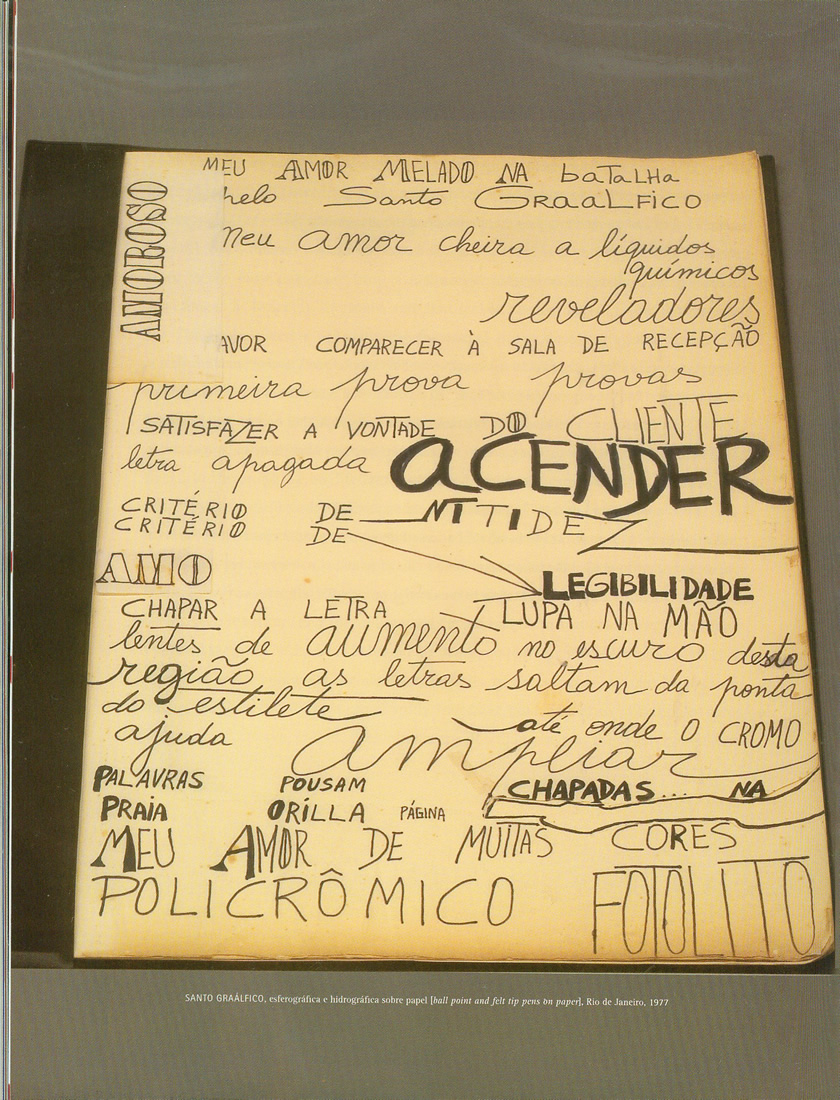 AMOROSO
MEU AMOR MELADO NA baTaLHa
pelo Santo GRaaLFiCO
Meu amor cheira a líquidos
químicos
reveladores
AVOR COMPARECER À SALA DE RECEPÇÃO
primeira prova provas
SATISFAZER A VONTADE DO CLIENTE
letra apagada aCENDER
CRITÉRIO DE NITIDEZ
CRITÉRIO DE
LEGIBILIDADE
AMO
CHAPAR A LETRA LUPA NA MÃO
lentes de aumento no escuro desta
região as letras saltam da ponta
do estilete até onde O CROMO
ajuda ampliar
PALAVRAS POUSAM CHAPADAS... NA
PRAIA ORILLA PÁGINA
MEU AMOR DE MUITAS CORES
POLICRÔMICO FOTOLITO
SANTO GRAÁLFICO, esferográfica e hidrográfica sobre papel [ball point and felt tip pens on paper], Rio de Janeiro, 1977